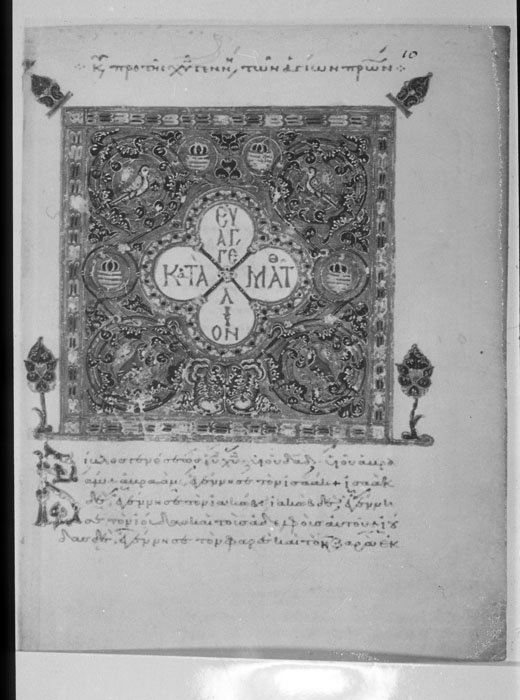 10
Κυ πρὸ τῆς χυ γεννή τῶν ἁγίων πρῶν
ΕΥ
ΑΓ
ΓΕ
ΚΑΤᾺ ΜΑΤΘ
ΛΙ
ΟΝ
Βίβλος γενέσεως ιυ χυ υἱοῦ δαδ υἱοῦ ἀβρα
ἀμ ἀβραὰμ ἐγέννησε τὸν ἰσαάκ ἰσαὰκ
δὲ ἐγέννησε τὸν ἰακώβ ἰακὼβ δὲ ἐγέννη
σε τὸν ἰούδαν καὶ τοὺς ἀδελφοὺς αὐτοῦ ἰού
δας δὲ ἐγέννησε τὸν φαρὲς καὶ τὸν ζαρὰ ἐκ